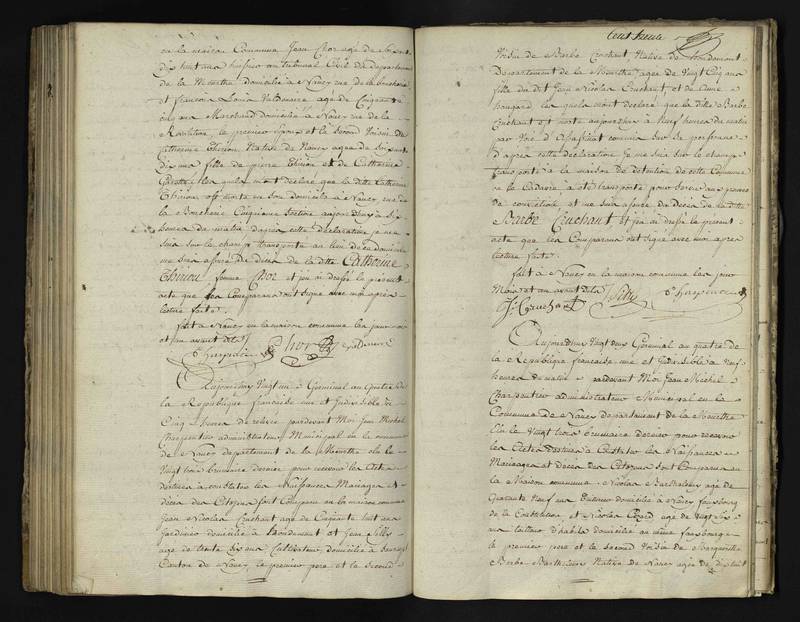 en la maison Commune Jean Chor agé de soixante
dix huit ans huissier au tribunal Civil du departement
de la Meurthe domicilié à Nancy rue de la boucherie
et francois Louis Valdenaire agé de Cinquante
cinq ans Marchand domicilié à Nancy rue de la
le premier Epoux et le second Voisin de
Catherine Thiriou Native de Nancy agée de soixante
dix ans fille de pierre Thiriou et de Catherine
les quels m'ont déclaré que la ditte Catherine
Thiriou est morte en son domicile à Nancy rue de
la Boucherie Cinquieme Section aujourdhuy à six
heures du matin d'après cette déclaration je me
suis sur le champ transporté au lieu de ce domicile
me suis assuré du décès de la ditte Catherine
Thiriou femme Chor et j'en ai dressé le présent
acte que les Comparans ont signé avec moi après
lecture faite.
fait à Nancy en la maison commune les jour mois
et an avant dits
Chor Valdenaire
Aujourdhui Vingt un Germinal an quatre de
la République française une et Indivisible à
Cinq heures de relevée pardevant Moi Jean Michel
Charpentier administrateur Municipal en la commune
de Nancy departement de la Meurthe élu le
Vingt trois brumaire dernier pour recevoir les Actes
destinés à constater les Naissances Mariages et
décès des Citoyens sont Comparus en la maison commune
Jean Nicolas Cruchant agé de Cinquante huit ans
Jardinier domicilié à et Jean Silly
agé de trente dix ans Cultivateur domicilié à
Canton de Nancy, le premier pere et le second
Cent trente
Voisin de Barbe Cruchant, Native de
Departement de la Meurthe agée de Vingt Cinq ans
fille du dit Jean Nicolas Cruchant et de Anne
Hougard les quels m'ont déclaré que la ditte Barbe
Cruchant est morte aujourdhui à Neuf heures du matin
par Voie d'assassinat commis sur sa personne
d'après cette déclaration je me suis sur le champ
transporté à la maison de détention de cette Commune
où le Cadavre a été transporté pour servir aux pieces
de conviction et me suis assuré du décès de la ditte
Barbe Cruchant. Et j'en ai dressé le présent
acte que les Comparans ont signé avec moi après
lecture faite.
fait à Nancy en la maison commune les jour
Mois et an avant dits
J. Cruchant Silly
Aujourdhui Vingt deux Germinal an quatre de
la République française une et Indivisible à neuf
heures du matin pardevant Moi Jean Michel
Charpentier administrateur Municipal en la
Commune de Nancy departement de la Meurthe
Elu le Vingt trois brumaire dernier pour recevoir
les Actes destinés à Constater les Naissances
Mariages et décès des Citoyens sont Comparus en
la Maison commune Nicolas Barthelemy agé de
Quarante Neuf ans domicilié à Nancy fauxbourg
de la Constitution et Nicolas agé de Vingt
ans tailleur d'habits domicilié au même fauxbourg
le premier pere et le second Voisin de Marguerite
Barbe Barthelemy Native de Nancy agée de dix huit